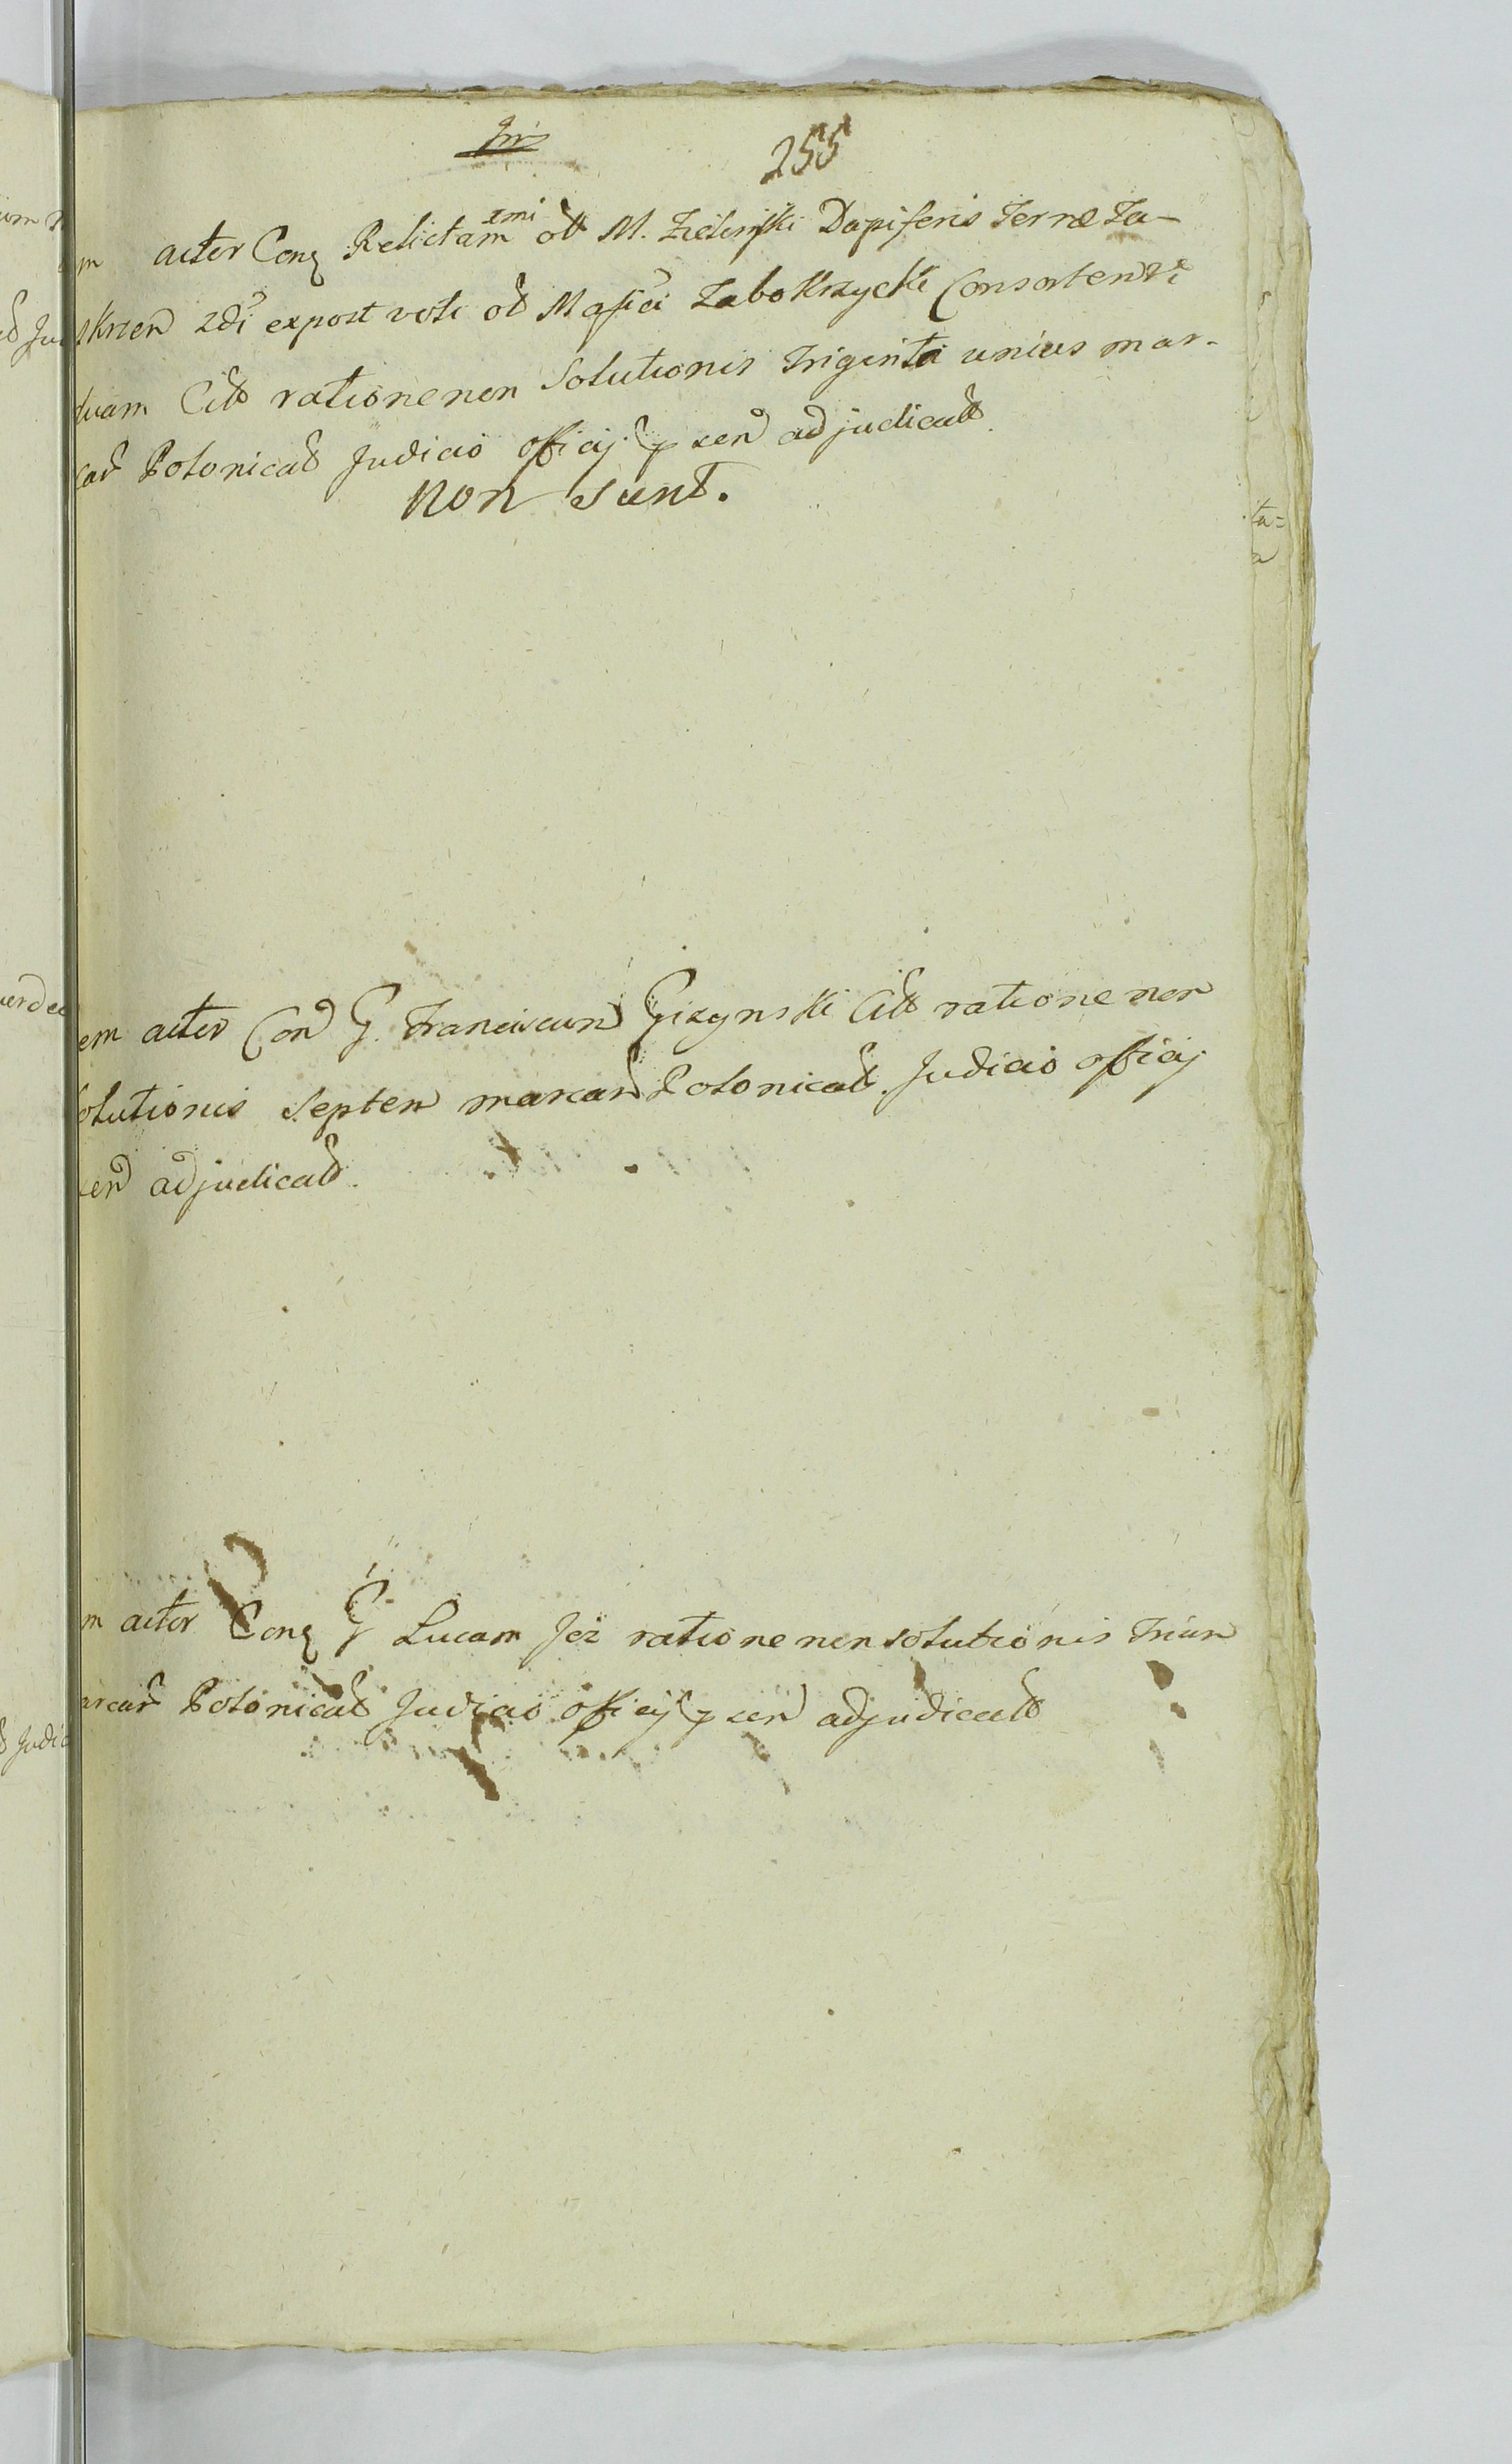 255
em actor Conq Relictam xmi ol M. Zielinski Dapiferis Terræ Za-
skrzen 2di expost voti ol Mafici Zabokrzycki Consortem Vi
duam Citt ratione non Solutionis Triginta unius mar-
car Polonical Judicio officij p xen adjudicatt.
non sunt.
em actor Con G. Franciscum Gizynski Citt ratione non
olutionis Septem marcar Polonical. Judicio officij
xen adjudicatt.
m actor Conq G Lucam Jez ratione non solutionis Trium
arcar Polonical Judicio officij p xen adjudicatt